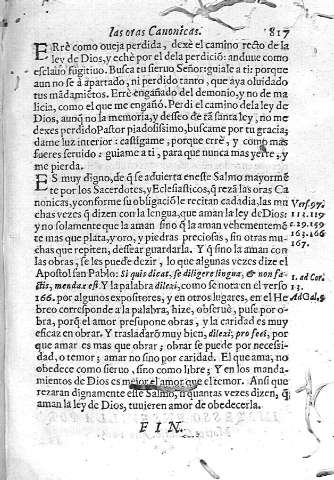 las oras Canonicas. 817
ERrè como oueja perdida, dexè el camino recto de la
ley de Dios, y echè por el de la perdiciō: anduue como
esclauo fugitiuo. Busca tu sieruo Señor: guiale a ti: porque
aun no se à apartado, ni perdido tanto, que aya oluidado
tus mādamiētos. Erré engañado del demonio, y no de ma
licia, como el que me engañó. Perdi el camino de la ley de
Dios, aunq̄ no la memoria, y desseo de tā santa ley, no me
dexes perdido Pastor piadosissimo, buscame por tu gracia;
dame luz interior: castigame, porque errè, y como mas
fueres seruido: guiame a ti, para que nunca mas yerre, y
me pierda.
ES muy digno, de q̄ se aduierta en este Salmo mayormē
te por los Sacerdotes, y Eclesiasticos, q̄ rezā las oras Ca
nonicas, y conforme su obligaciō le recitan cada dia, las mu
chas vezes q̄ dizen con la lengua, que aman la ley de Dios: Vers. 97.
113. 119
y no solamente que la aman sino q̄ la aman vehementemē c. 29.
159.
te mas que plata, y oro, y piedras preciosas, sin otras mu 163. 166
chas que repiten, dessear guardarla. Y q̄ sino la aman con 167.
las obras, se les puede dezir, lo que algunas vezes dize el
Apostol san Pablo: Si quis dicat, se diligere lingua, & non fa
ctis, mendax est. Y la palabra dilexi, como se nota en el verso 1. ad Cor.
13.
166. por algunos expositores, y en otros lugares, en el He Ad Gal. 5
breo corresponde a la palabra, hize, obseruè, puse por o-
bra, porq̄ el amor presupone obras, y la caridad es muy
eficaz en obrar. Y trasladarō muy bien, dilexi, pro feci, por
que amar es mas que obrar; obrar se puede por necessi-
dad, o temor; amar no sino por caridad. El que ama, no
obedece como sieruo, sino como libre; Y en los manda-
mientos de Dios es mejor el amor que el temor. Ansi que
rezaran dignamente este Salmo, si quantas vezes dizen, q̄
aman la ley de Dios, tuuieren amor de obedecerla.
FIN.